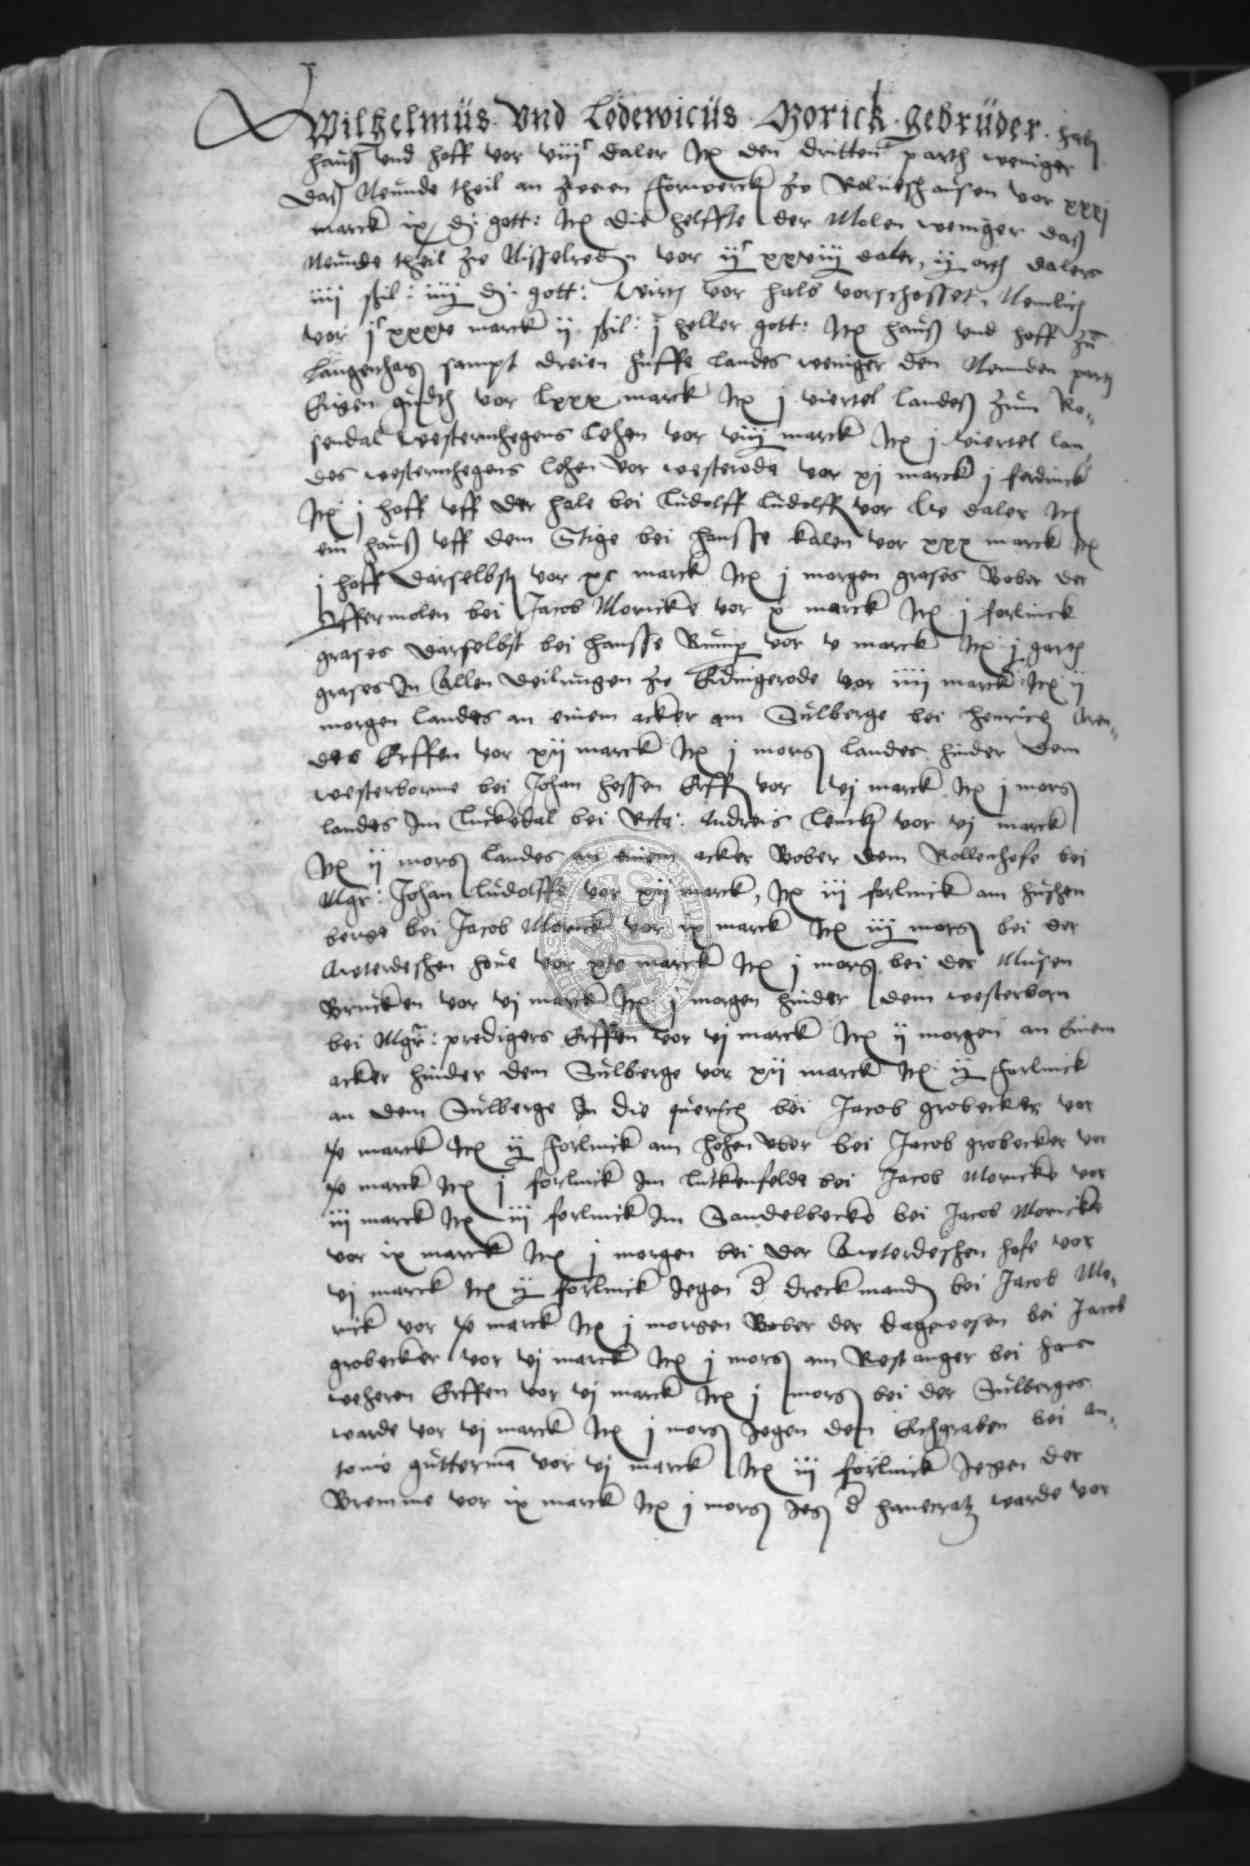 Wilhelmüs Vnd Lodewicüs Morick gebrüder habē
hauß vnd hoff vor viijc daler Itē den dritten parth weniger
daß Neunde theil an zweien forwerckē zw Roluesshausen vor xxxj
marck ix ₰ gott: Itē die helffte der Molen weniger daß
Neunde theil zw Nisselredē vor ijc xxviij daler, ij orth dalers
iiij ßil: iiij ₰ gott: wirth vor halb vorschosset, Nemlich
vor jc xxxv marck ij ßil: j heller gott: Itē hauß vnd hoff zu
Langenhagē sampt dreien huffe landes weniger den Neunden parth
Eigen gudth vor lxxx marck Itē j viertel landeß zum Ro-
sendal westernhegens lehen vor viij marck Itē j viertel lan
des westernhegens lehen vor westerode vor xj marck j ferdinck
Itē j hoff vff der hale bei Ludolff Ludolff vor lv daler Itē
ein hauß vff dem Stige bei hansse kalen vor xxx marck Itē
j hoff darselbst vor xc marck Itē j morgen grases Bober der
Offermolen bei Jacob Moricke vor x marck Itē j forlinck
grases darselbst bei hansse Rump vor v marck Itē j garth
grases In Allen deilungen zw Edingerode vor iiij marck Itē ij
morgen landes an einem acker am Sulberge bei henrich Aren-
des Erffen vor xij marck Itē j morg landes hinder dem
westerborne bei Johan hessen Erffē vor vj marck Itē j morg
landes Im Luckedal bei Andreis Lenckē vor vj marck
Itē ij morg landes an einem acker Bober dem Rollenhofe bei
Mgr: Johan Ludolffe vor xij marck, Itē iij forlinck am
berge bei Jacob Moricke vor ix marck Itē iij morg bei der
Aneterdeshen houe vor xv marck Itē j morg bei der Musen
Brucken vor vj marck Itē j morgen hinder dem westerborn
bei Mgr: predigers Erffen vor vj marck Itē ij morgen an Einem
acker hinder dem Sulberge vor xij marck Itē ij forlinck
an dem Sulberge In die querch bei Jacob grobecker vor
vj marck Itē ij forlinck am hohen vber bei Jacob grobecker vor
vj marck Itē j forlinck Im lutkenfelde bei Jacob Moricke vor
iij marck Itē iij forlinck Im Sandelbecke bei Jacob Moricke
vor ix marck Itē j morgen bei der Aneterdeshen hofe vor
vj marck Itē ij forlinck Iegen d dreckmandē bei Jacob Mo-
rick vor marck Itē j morgen Bober der bei Jacob
grobecker vor vj marck Itē j morg am Rostanger bei hans
weheren Erffen vor vj marck Itē j morg bei der Sulberges
warde vor vj marck Itē j morg Iegen dem Eschgraben bei an-
tonio guttermā vor vj marck Itē iij forlinck Iegen der
Bremme vor ix marck Itē j morg Ieg d hanecratz warde vor